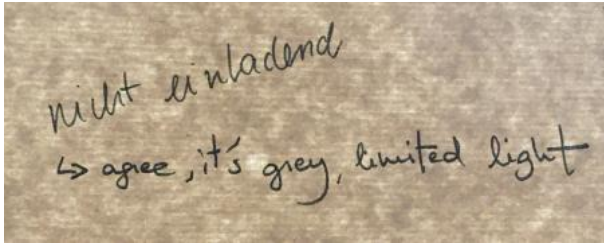 nicht einladend
↳ agree, it's grey, limited light